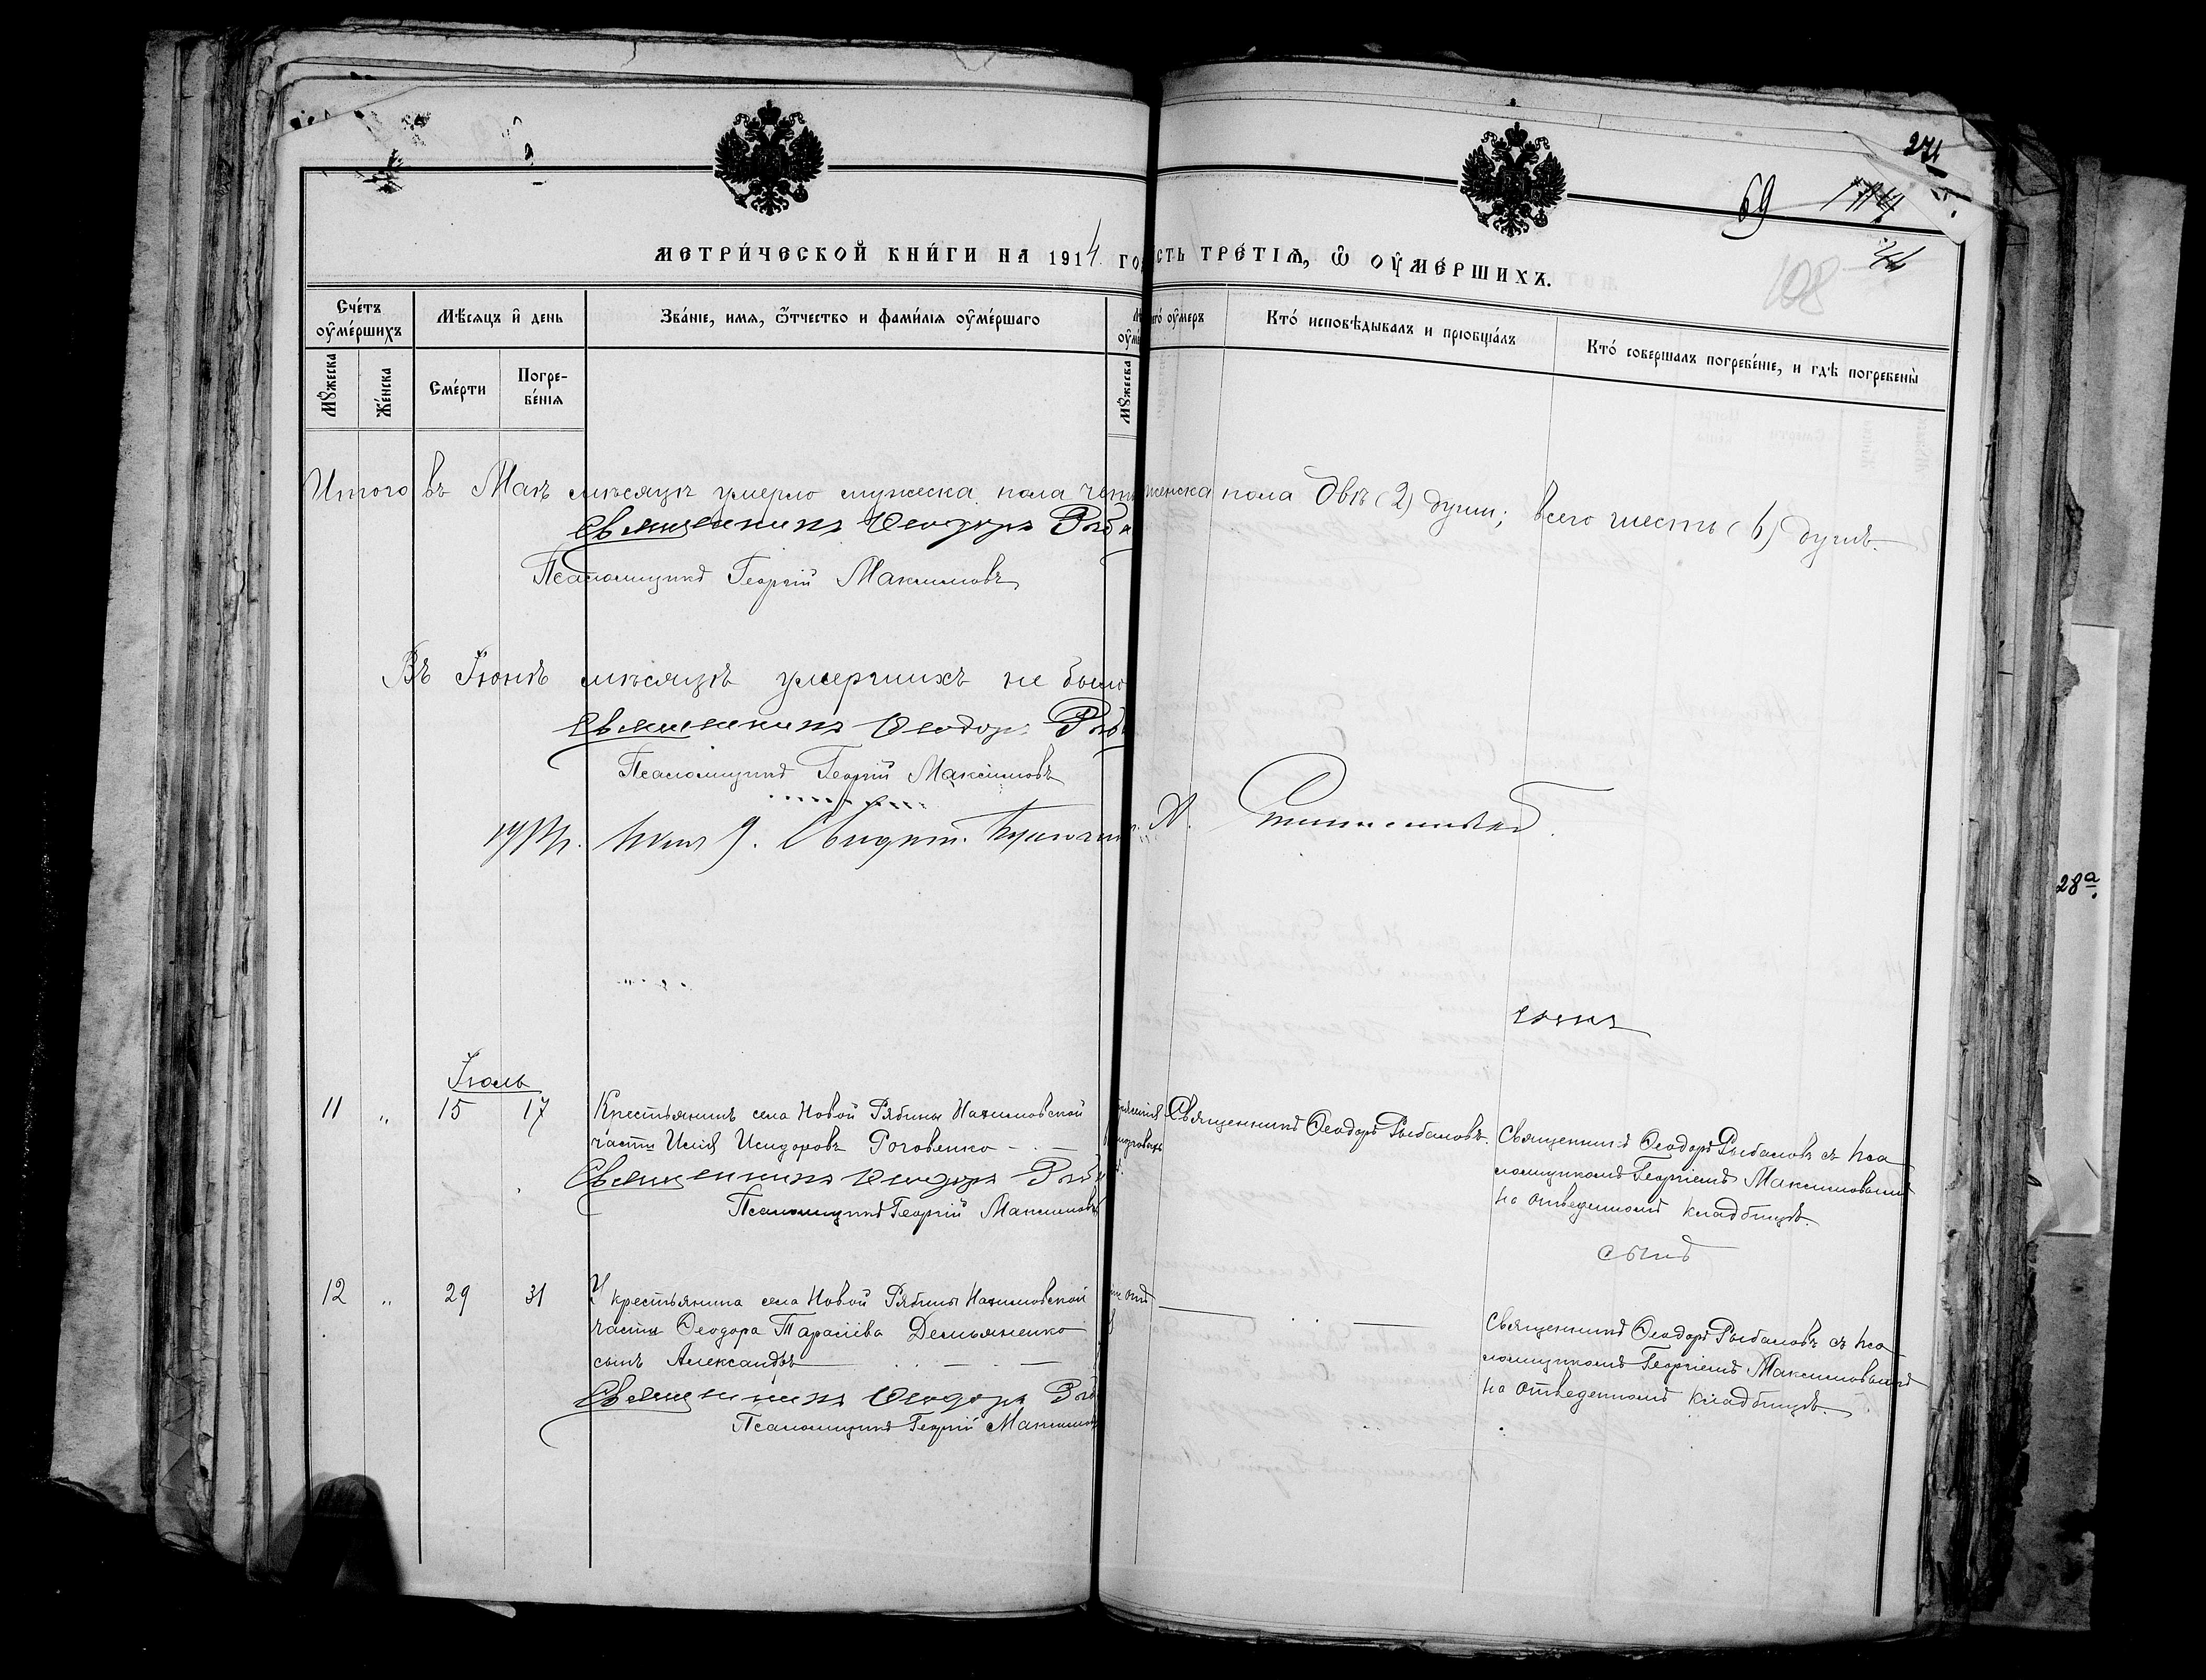 271
69
108
МЕТРИ́ЧЕСКОЙ КНИ́ГИ НА 1914 ГО
СТЬ ТРЕ́ТІѦ, Ѡ ОУ҆МЕ́РШИХЪ.
Сче́тъ оу҆ме́ршихъ
Мѣ́сяцъ и҆ день
Зва́нїе, имѧ, ѻ҆́тчество и фами́лїѧ оу҆ме́ршаго
его оу҆меръ
Кто́ исповѣ́дывалъ и прїобща́лъ
Кто́ соверша́лъ погребе́нїе, и гдѣ̀ погребены̀
Мꙋ́жеска
Же́нска
Сме́рти
Погре-
бе́нїѧ
Мꙋ́жеска
Итого въ Маѣ мѣсяцѣ умерло мужеска пола четы
женска пола двѣ (2) души; всего шесть (6) душъ.
Священникъ Ѳеодоръ Рыб
Псаломщикъ Георгій Максимовъ
Въ Іюнѣ мѣсяцѣ умершихъ не было
Священникъ Ѳеодоръ Рыб
Псаломщикъ Георгій Максимовъ
Іюля 9. Свидѣт.
Іюль
11 " 15 17 Крестьянинъ села Новой Рябины
части Илія Исидоровъ Роговенко
Священникъ Ѳеодоръ Рыб
Псаломщикъ Георгій Максимовъ
Священникъ Ѳеодоръ Рыбаловъ.
Священникъ Ѳеодоръ Рыбаловъ съ пса
ломщикомъ Георгіемъ Максимовымъ
на отведенномъ кладбищѣ.
12 " 29 31 У крестьянина села Новой Рябины
части Ѳеодора Тарасіева Демьяненко
сынъ Александръ
Священникъ Ѳеодоръ Рыб
Псаломщикъ Георгій Максимов
Священникъ Ѳеодоръ Рыбаловъ съ пса
ломщикомъ Георгіемъ Максимовымъ
на отведенномъ кладбищѣ.
28а